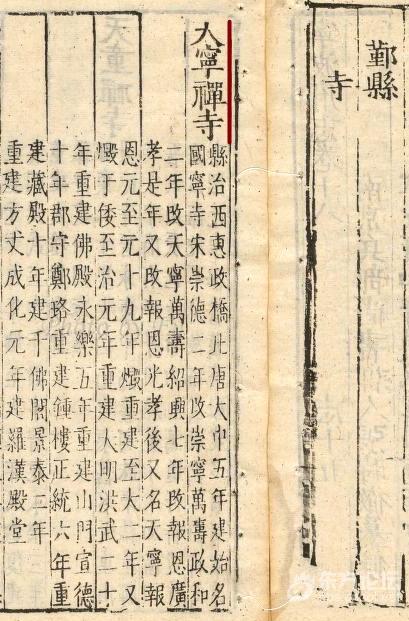 鄞縣
寺
大寧禪寺
縣治西惠政橋北唐大中五年建始名
國寧寺宋崇德二年改崇寧萬壽政和
二年改天寧萬壽紹興七年改報恩廣
孝是年又改報恩光孝後又名天寧報
恩元至元十九年燬重建至大二年又
燬于倭至治元年重建大明洪武二十
年重建佛殿永樂五年重建山門宣德
十年郡守鄭路重建鍾樓正統六年重
建藏殿十年建千佛閣景泰二年
重建方丈成化元年建羅漢殿堂
东方论坛